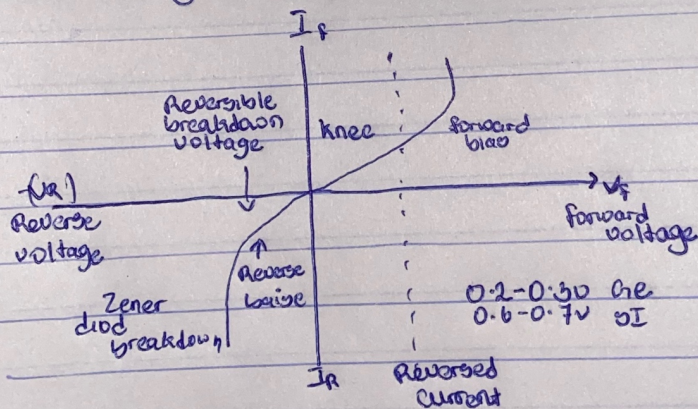 I_F
Reversible
breakdown
voltage
knee
forward
bias
-(V_R)
Reverse
voltage
V_F
forward
voltage
Reverse
baise
Zener
diod
breakdown
0.2-0.30 Ge
0.6-0.7v SI
I_R
Reversed
current